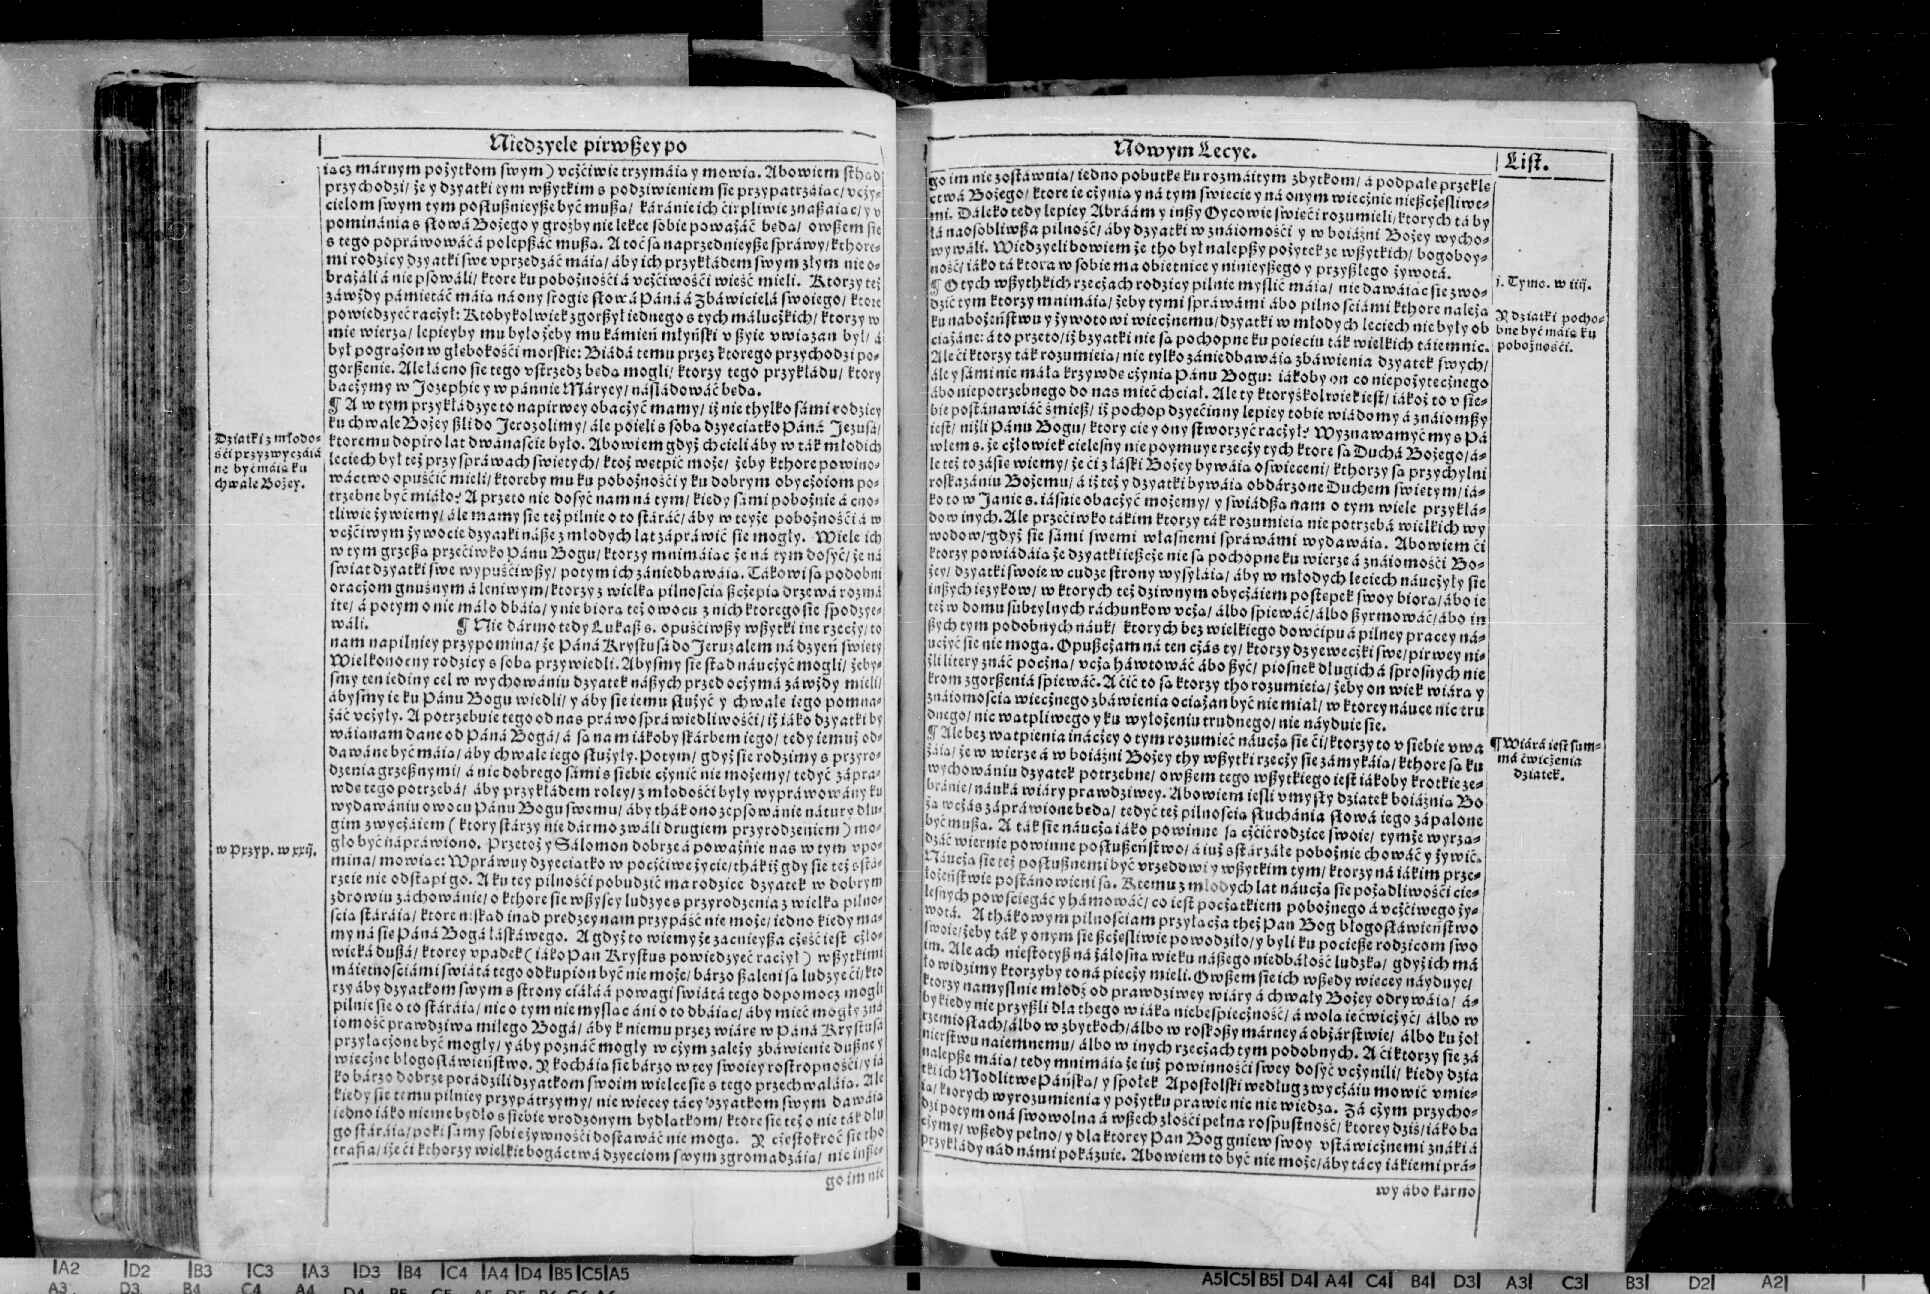 Niedzyele pirwßey po
iacz márnym pożytkom swym) vcżćiwie trzymáia y mowia. Abowiem sthad
przychodzi/ że y dzyatki tym wßytkim s podziwieniem sie przypatrzáiac/ vcży-
cielom swym tym posłußnieyße być mußa/ káránie ich ćirpliwie znaßáiac/ y v
pominánia s słowá Bożego y groźby nie lekce sobie poważáć beda/ owßem sie
s tego popráwowáć á polepßáć mußa. A toć sa naprzednieyße spráwy/ kthore-
mi rodzicy dzyatki swe vprzedzáć máia/ áby ich przykładem swym złym nie o-
brażáli á nie psowáli/ ktore ku pobożnośći á vcżćiwośći wieść mieli. Ktorzy też
záwżdy pámietáć máia ná ony srogie słowá Páná á Zbáwicielá swoiego/ ktore
powiedzyeć racżył: Ktobykolwiek zgorßył iednego s tych málucżkich/ ktorzy w
mie wierza/ lepieyby mu było żeby mu kámień młyński v ßyie vwiazan był/ á
był pograżon w głebokośći morskie: Biádá temu przez ktorego przychodzi po-
gorßenie. Ale łácno sie tego vstrzedz beda mogli/ ktorzy tego przykładu/ ktory
bacżymy w Jozephie y w pánnie Máryey/ násládowáć beda.
¶ A w tym przykłádzye to napirwey obacżyć mamy/ iż nie thylko sámi rodzicy
ku chwale Bożey ßli do Jerozolimy/ ále poieli s soba dzyeciatko Páná Jezusá/
ktoremu dopiro lat dwánascie było. Abowiem gdyż chcieli áby w ták młodich
leciech był też przy spráwach swietych/ ktoż wetpić może/ żeby kthore powino-
wáctwo opuśćić mieli/ ktoreby mu ku pobożnośći y ku dobrym obycżoiom po-
trzebne być miáło? A przeto nie dosyć nam ná tym/ kiedy sámi pobożnie á cno-
tliwie żywiemy/ ále mamy sie też pilnie o to stáráć/ áby w teyże pobożnośći á w
vcżćiwym żywocie dzyatki náße z młodych lat zápráwić sie mogły. Wiele ich
w tym grzeßa przećiwko Pánu Bogu/ ktorzy mnimáiac że ná tym dosyć/ że ná
świat dzyatki swe wypuśćiwßy/ potym ich zániedbawáia. Tákowi sa podobni
oracżom gnuśnym á leniwym/ ktorzy z wielka pilnoscia ßcżepia drzewá rozmá
ite/ á potym o nie máło dbáia/ y nie biora też owocu z nich ktorego sie spodzye-
wáli. ¶ Nie dármo tedy Lukaß s. opuśćiwßy wßytki ine rzecży/ to
nam napilniey przypomina/ że Páná Krystusá do Jeruzalem ná dzyeń swiety
Wielkonocny rodzicy s soba przywiedli. Abysmy sie stad náucżyć mogli/ żeby-
smy ten iediny cel w wychowániu dzyatek náßych przed ocżymá záwżdy mieli/
ábysmy ie ku Pánu Bogu wiedli/ y áby sie iemu służyć y chwałe iego pomna-
żáć vcżyły. A potrzebuie tego od nas práwo spráwiedliwośći/ iż iáko dzyatki by
wáia nam dane od Páná Bogá/ á sa nam iákoby skárbem iego/ tedy iemuż od-
dawáne być máia/ áby chwale iego służyły. Potym/ gdyż sie rodzimy s przyro-
dzenia grzeßnymi/ á nic dobrego sámi s siebie cżynić nie możemy/ tedyć zápra-
wde tego potrzebá/ áby przykładem roley/ z młodośći były wypráwowány ku
wydawániu owocu Pánu Bogu swemu/ áby thák ono zepsowánie nátury dłu-
gim zwycżáiem (ktory stárzy nie dármo zwáli drugiem przyrodzeniem) mo-
gło być nápráwiono. Przetoż y Sálomon dobrze á poważnie nas w tym vpo-
mina/ mowiac: Wpráwuy dzyeciatko w pocżćiwe życie/ thák iż gdy sie też sstá-
rzeie nie odstapi go. A ku tey pilnośći pobudzić ma rodzice dzyatek w dobrym
zdrowiu záchowánie/ o kthore sie wßyscy ludzye s przyrodzenia z wielka pilno-
scia stáráia/ ktore niskad inad predzey nam przypáść nie może/ iedno kiedy ma-
my ná sie Páná Bogá łáskáwego. A gdyż to wiemy że zacnieyßa cżeść iest cżło-
wieká dußá/ ktorey vpadek (iáko Pan Krystus powiedzyeć racżył) wßytkimi
máietnosciámi swiátá tego odkupion być nie może/ bárzo ßaleni sa ludzye ći/ kto
rzy áby dzyatkom swym s strony ciáłá á powagi swiátá tego dopomocz mogli
pilnie sie o to stáráia/ nic o tym nie myslac áni o to dbáiac/ áby mieć mogły zna
iomość prawdziwa miłego Bogá/ áby k niemu przez wiáre w Páná Krystusá
przyłacżone być mogły/ y áby poznáć mogły w cżym zależy zbáwienie dußne y
wiecżne błogosłáwieństwo. Y kocháia sie bárzo w tey swoiey rostropnośći/ y iá
ko bárzo dobrze porádzili dzyatkom swoim wielce sie s tego przechwaláia. Ale
kiedy sie temu pilniey przypátrzymy/ nie wiecey tácy dzyatkom swym dawáia
iedno iáko nieme bydło s siebie vrodzonym bydlatkom/ ktore sie też o nie ták dłu
go stáráia/ poki sámy sobie żywnośći dostawáć nie moga. Y cżestokroć sie tho
trafia/ iże ći kthorzy wielkie bogáctwá dzyeciom swym zgromadzáia/ nic inße-
go im nie
Dziatki z młodo-
śći przyzwyczáiá
ne być máia ku
chwale Bożey.
w Przyp. w xxij.
Nowym Lecye.
List.
go im nie zostáwuia/ iedno pobutke ku rozmáitym zbytkom/ á podpałe przekle
ctwá Bożego/ ktore ie cżynia y ná tym swiecie y ná onym wiecżnie nießcżesliwe-
mi. Dáleko tedy lepiey Abráám y inßy Oycowie swieći rozumieli/ ktorych tá by
łá naosobliwßa pilność/ áby dzyatki w znáiomośći y w boiáźni Bożey wycho-
wywáli. Wiedzyeli bowiem że tho był nalepßy pożytek ze wßytkich/ bogoboy-
ność/ iáko tá ktora w sobie ma obietnice y ninieyßego y przyßłego żywotá.
¶ O tych wßythkich rzecżach rodzicy pilnie myślić máia/ nie dawáiac sie zwo-
dzić tym ktorzy mnimáia/ żeby tymi spráwámi ábo pilnosciámi kthore należa
ku nabożeństwu y żywotowi wiecżnemu/ dzyatki w młodych leciech nie były ob
ciażáne: á to przeto/ iż dzyatki nie sa pochopne ku poieciu ták wielkich táiemnic.
Ale ći ktorzy ták rozumieia/ nie tylko zániedbawáia zbáwienia dzyatek swych/
ále y sámi nie máła krzywde cżynia Pánu Bogu: iákoby on co niepożytecżnego
ábo niepotrzebnego do nas mieć chciał. Ale ty ktoryżkolwiek iest/ iákoż to v sie-
bie postánawiáć śmieß/ iż pochop dzyećinny lepiey tobie wiádomy á znáiomßy
iest/ niżli Pánu Bogu/ ktory cie y ony stworzyć racżył? Wyznawamyć my s Pá
włem s. że cżłowiek cielesny nie poymuye rzecży tych ktore sa Duchá Bożego/ á-
le też to zásie wiemy/ że ći z łáski Bożey bywáia oswieceni/ kthorzy sa przychylni
roskazániu Bożemu/ á iż też y dzyatki bywáia obdárzone Duchem swietym/ iá-
ko to w Janie s. iásnie obacżyć możemy/ y swiádßa nam o tym wiele przykłá-
dow inych. Ale przećiwko tákim ktorzy ták rozumieia nie potrzebá wielkich wy
wodow/ gdyż sie sámi swemi własnemi spráwámi wydawáia. Abowiem ći
ktorzy powiádáia że dzyatki ießcże nie sa pochopne ku wierze á znáiomośći Bo-
żey/ dzyatki swoie w cudze strony wysyłáia/ áby w młodych leciech náucżyły sie
inßych iezykow/ w ktorych też dziwnym obycżáiem postepek swoy biora/ ábo ie
też w domu subtylnych ráchunkow vcża/ álbo śpiewáć/ álbo ßyrmowáć/ ábo in
ßych tym podobnych náuk/ ktorych bez wielkiego dowćipu á pilney pracey ná-
ucżyć sie nie moga. Opußcżam ná ten cżás ty/ ktorzy dzyewecżki swe/ pirwey ni-
żli litery znáć pocżna/ vcża háwtowáć ábo ßyć/ piosnek długich á sprosnych nie
krom zgorßenia śpiewáć. A ćić to sa ktorzy tho rozumieia/ żeby on wiek wiára y
znáiomoscia wiecżnego zbáwienia ociażan być nie miał/ w ktorey náuce nic tru
dnego/ nic watpliwego y ku wyłożeniu trudnego/ nie náyduie sie.
¶ Ale bez watpienia inácżey o tym rozumieć náucża sie ći/ ktorzy to v siebie vwa
żáia/ że w wierze á w boiáźni Bożey thy wßytki rzecży sie zámykáia/ kthore sa ku
wychowániu dzyatek potrzebne/ owßem tego wßytkiego iest iákoby krotkie ze-
bránie/ náuká wiáry prawdziwey. Abowiem iesli vmysły dziatek boiáźnia Bo
ża wcżás zápráwione beda/ tedyć też pilnoscia słuchánia słowá iego zápalone
być mußa. A ták sie náucża iáko powinne sa cżćić rodzice swoie/ tymże wyrza-
dzáć wiernie powinne posłußeństwo/ á iuż sstárzáłe pobożnie chowáć y żywić.
Náucża sie też posłußnemi być vrzedowi y wßytkim tym/ ktorzy ná iákim prze-
łożeństwie postánowieni sa. Ktemu z młodych lat náucża sie pożadliwośći cie-
lesnych powsciegáć y hámowáć/ co iest pocżatkiem pobożnego á vcżćiwego ży-
wotá. A thákowym pilnosciam przyłacża theż Pan Bog błogosłáwieństwo
swoie/ żeby ták y onym sie ßcżesliwie powodziło/ y byli ku pocieße rodzicom swo
im. Ale ach niestotyß ná żáłosna wieku náßego niedbáłość ludzka/ gdyż ich má
ło widzimy ktorzyby to ná piecży mieli. Owßem sie ich wßedy wiecey náyduye/
ktorzy namyslnie młodź od prawdziwey wiáry á chwały Bożey odrywáia/ á-
by kiedy nie przyßli dla thego w iáka niebespiecżność/ á wola ie ćwicżyć/ álbo w
rzemiosłach/ álbo w zbytkoch/ álbo w roskoßy márney á obżárstwie/ álbo ku żoł
nierstwu naiemnemu/ álbo w inych rzecżach tym podobnych. A ći ktorzy sie zá
nalepße máia/ tedy mnimáia że iuż powinnośći swey dosyć vcżynili/ kiedy dzia
tki ich Modlitwe Páńska/ y społek Apostolski według zwycżáiu mowić vmie-
ia/ ktorych wyrozumienia y pożytku práwie nic nie wiedza. Zá cżym przycho-
dzi potym oná swowolna á wßech złośći pełna rospustność/ ktorey dziś/ iáko ba
cżymy/ wßedy pełno/ y dla ktorey Pan Bog gniew swoy vstáwicżnemi znáki á
przykłády nád námi pokázuie. Abowiem to być nie może/ áby tácy iákiemi prá-
wy ábo karno
j. Tymo. w iiij.
Y dziatki pocho-
bne być máia ku
pobożnośći.
¶ Wiárá iest sum-
má ćwiczenia
dziatek.
A2 D2 B3 C3 A3 D3 B4 C4 A4 D4 B5 C5 A5
A5 C5 B5 D4 A4 C4 B4 D3 A3 C3 B3 D2 A2